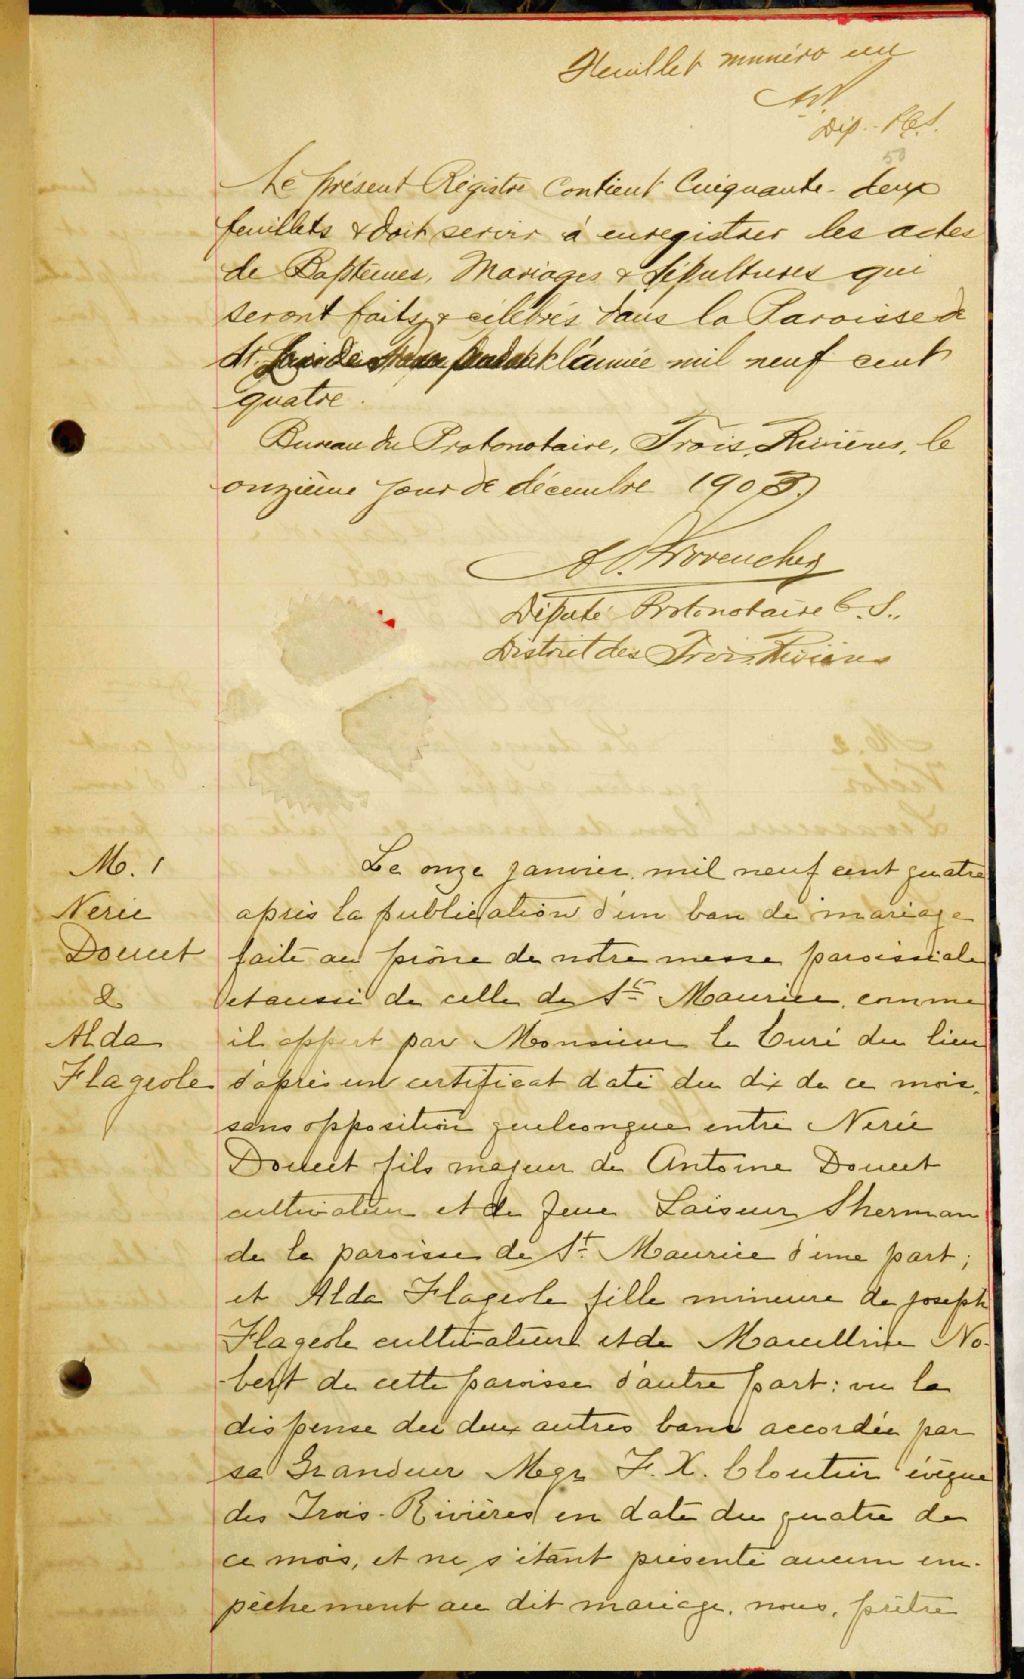 Feuillet numéro un
Dép. P.C.S.
50
Le présent Régistre contient Cinquante-deux
feuillets & doit servir à enregistrer les actes
de Baptêmes, Mariages & Sépultures qui
seront faits & célébrés dans la Paroisse de
St l'année mil neuf cent
quatre.
Bureau du Protonotaire, Trois-Rivières, le
onzième jour de décembre 1903.
Provencher
Député Protonotaire C. S.,
District des Trois-Rivières
M. 1
Nerée
Doucet
&
Alda
Flageole
Le onze janvier mil neuf cent quatre
après la publication d'un ban de mariage
faite au prône de notre messe paroissiale
et aussi de celle de St Maurice, comme
il appert par Monsieur le Curé du lieu
d'après un certificat daté du dix de ce mois,
sans opposition quelconque entre Nerée
Doucet fils majeur de Antoine Doucet
cultivateur et de feue Sherman
de la paroisse de St Maurice d'une part;
et Alda Flageole fille mineure de Joseph
Flageole cultivateur et de Marcelline No-
bert de cette paroisse d'autre part: vu la
dispense des deux autres bans accordée par
sa Grandeur Mgr F. X. Cloutier évêque
des Trois-Rivières en date du quatre de
ce mois, et ne s'étant présenté aucun em-
pêchement au dit mariage, nous, prêtre